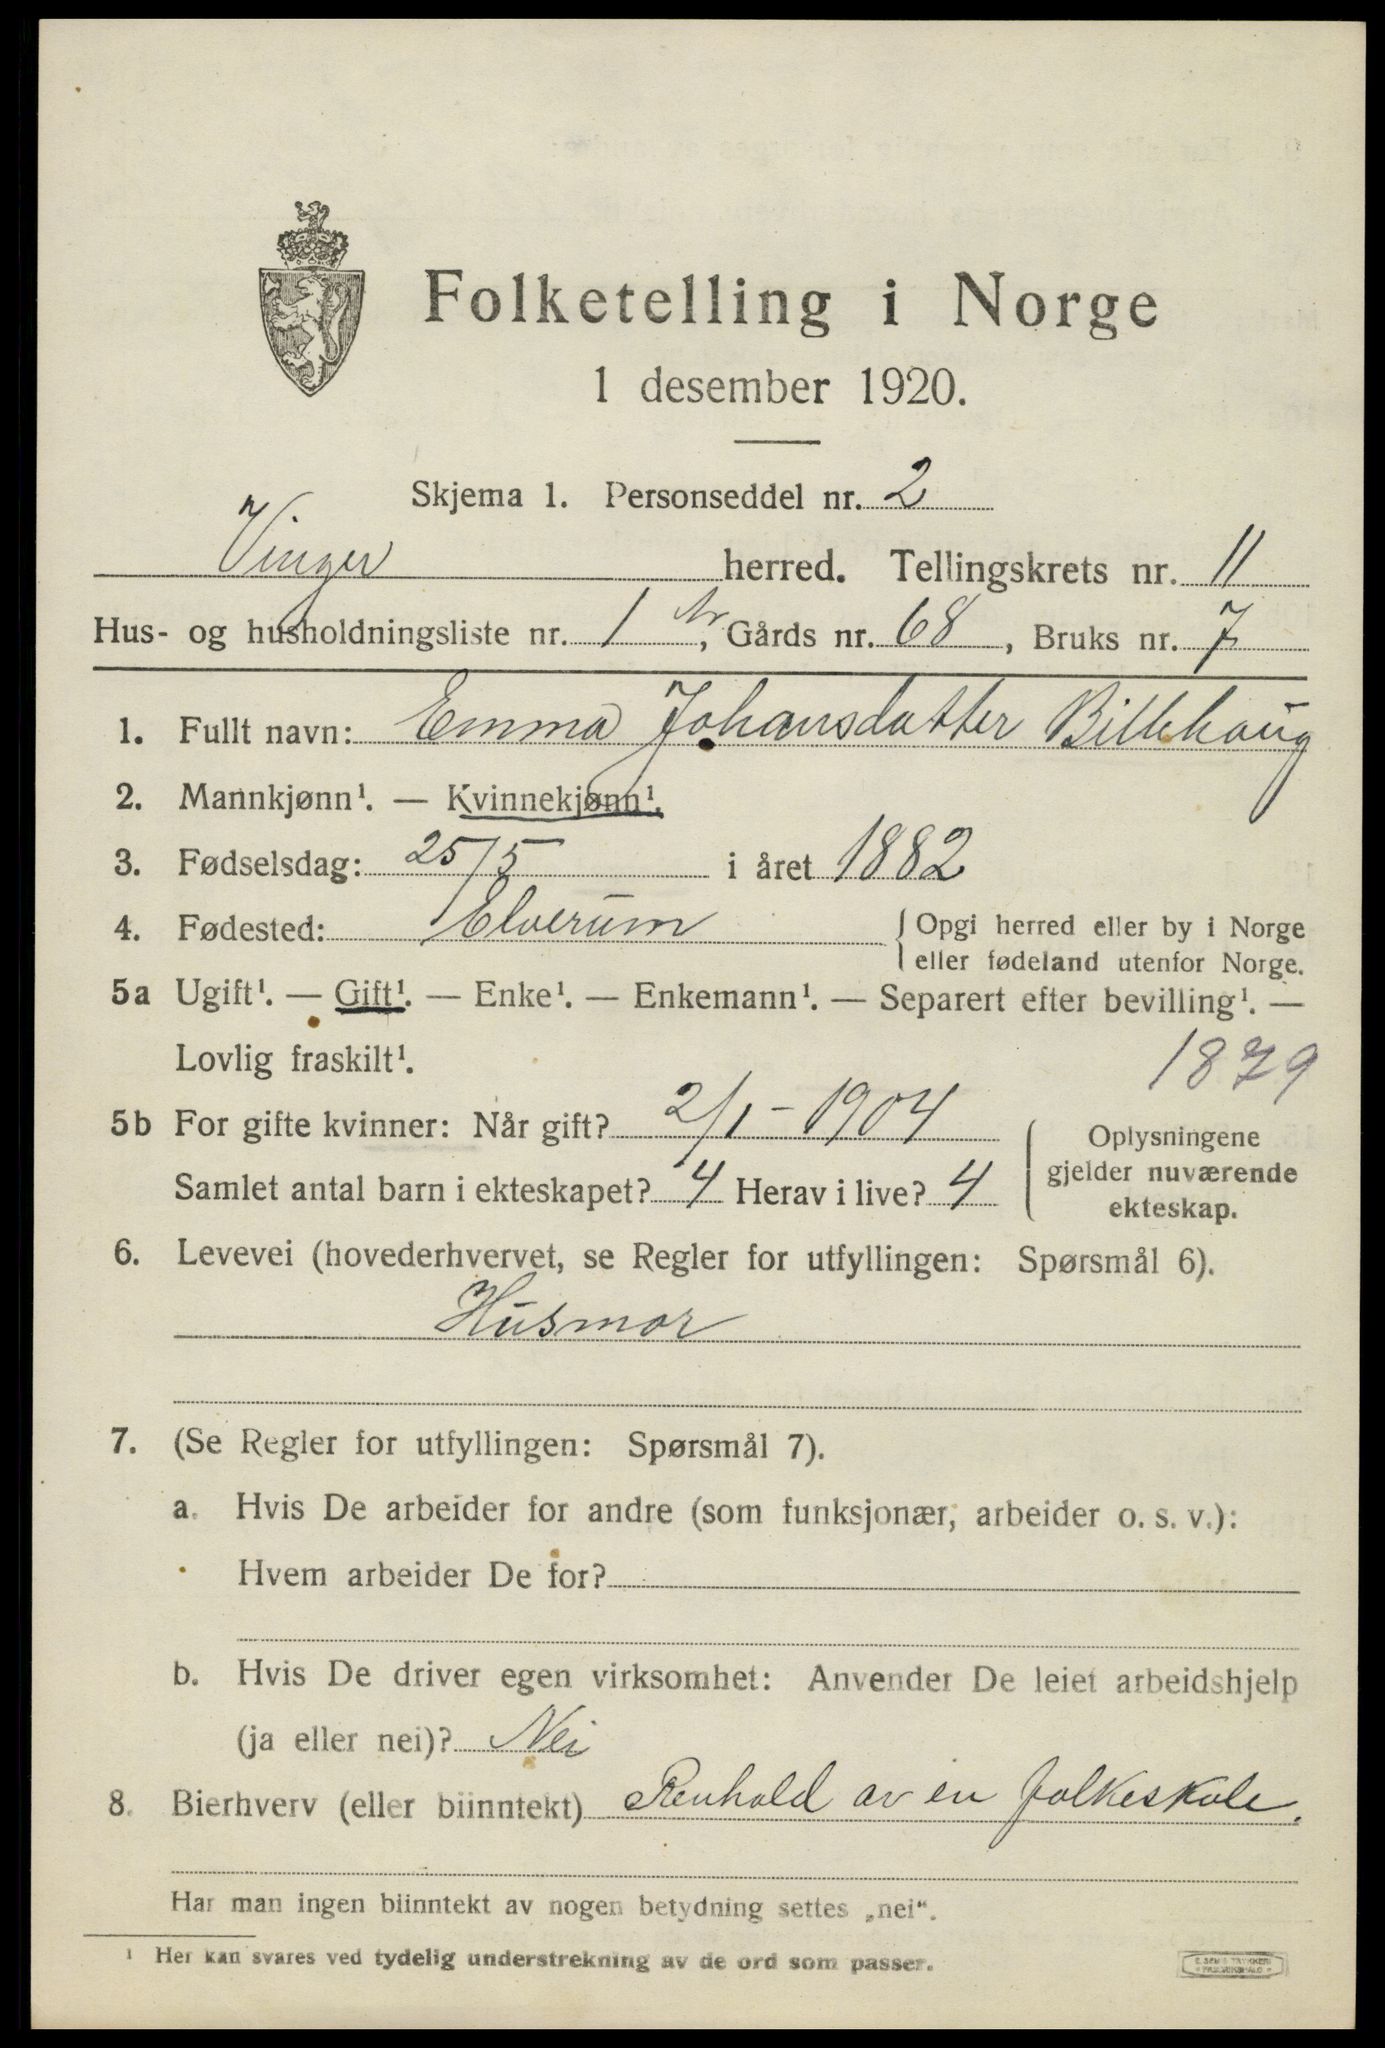 Folketelling i Norge
1 desember 1920.
Skjema 1. Personseddel nr. 2
Vinger herred. Tellingskrets nr. 11
Hus- og husholdningsliste nr. 1, Gårds nr. 68, Bruks nr. 7
1. Fullt navn: Emma Johansdatter Billehaug
2. Mannkjønn¹. — Kvinnekjønn¹.
3. Fødselsdag: 25/5 i året 1882
4. Fødested: Elverum { Opgi herred eller by i Norge
eller fødeland utenfor Norge.
5a Ugift¹. — Gift¹. — Enke¹. — Enkemann¹. — Separert efter bevilling¹. —
Lovlig fraskilt¹. 1879
5b For gifte kvinner: Når gift? 2/1-1904
Samlet antal barn i ekteskapet? 4 Herav i live? 4
Oplysningene
gjelder nuværende
ekteskap.
6. Levevei (hovederhvervet, se Regler for utfyllingen: Spørsmål 6).
Husmor
7. (Se Regler for utfyllingen: Spørsmål 7).
a. Hvis De arbeider for andre (som funksjonær, arbeider o. s. v.):
Hvem arbeider De for?
b. Hvis De driver egen virksomhet: Anvender De leiet arbeidshjelp
(ja eller nei)? Nei
8. Bierhverv (eller biinntekt) Renhold av en folkeskole.
Har man ingen biinntekt av nogen betydning settes „nei“.
¹ Her kan svares ved tydelig understrekning av de ord som passer.